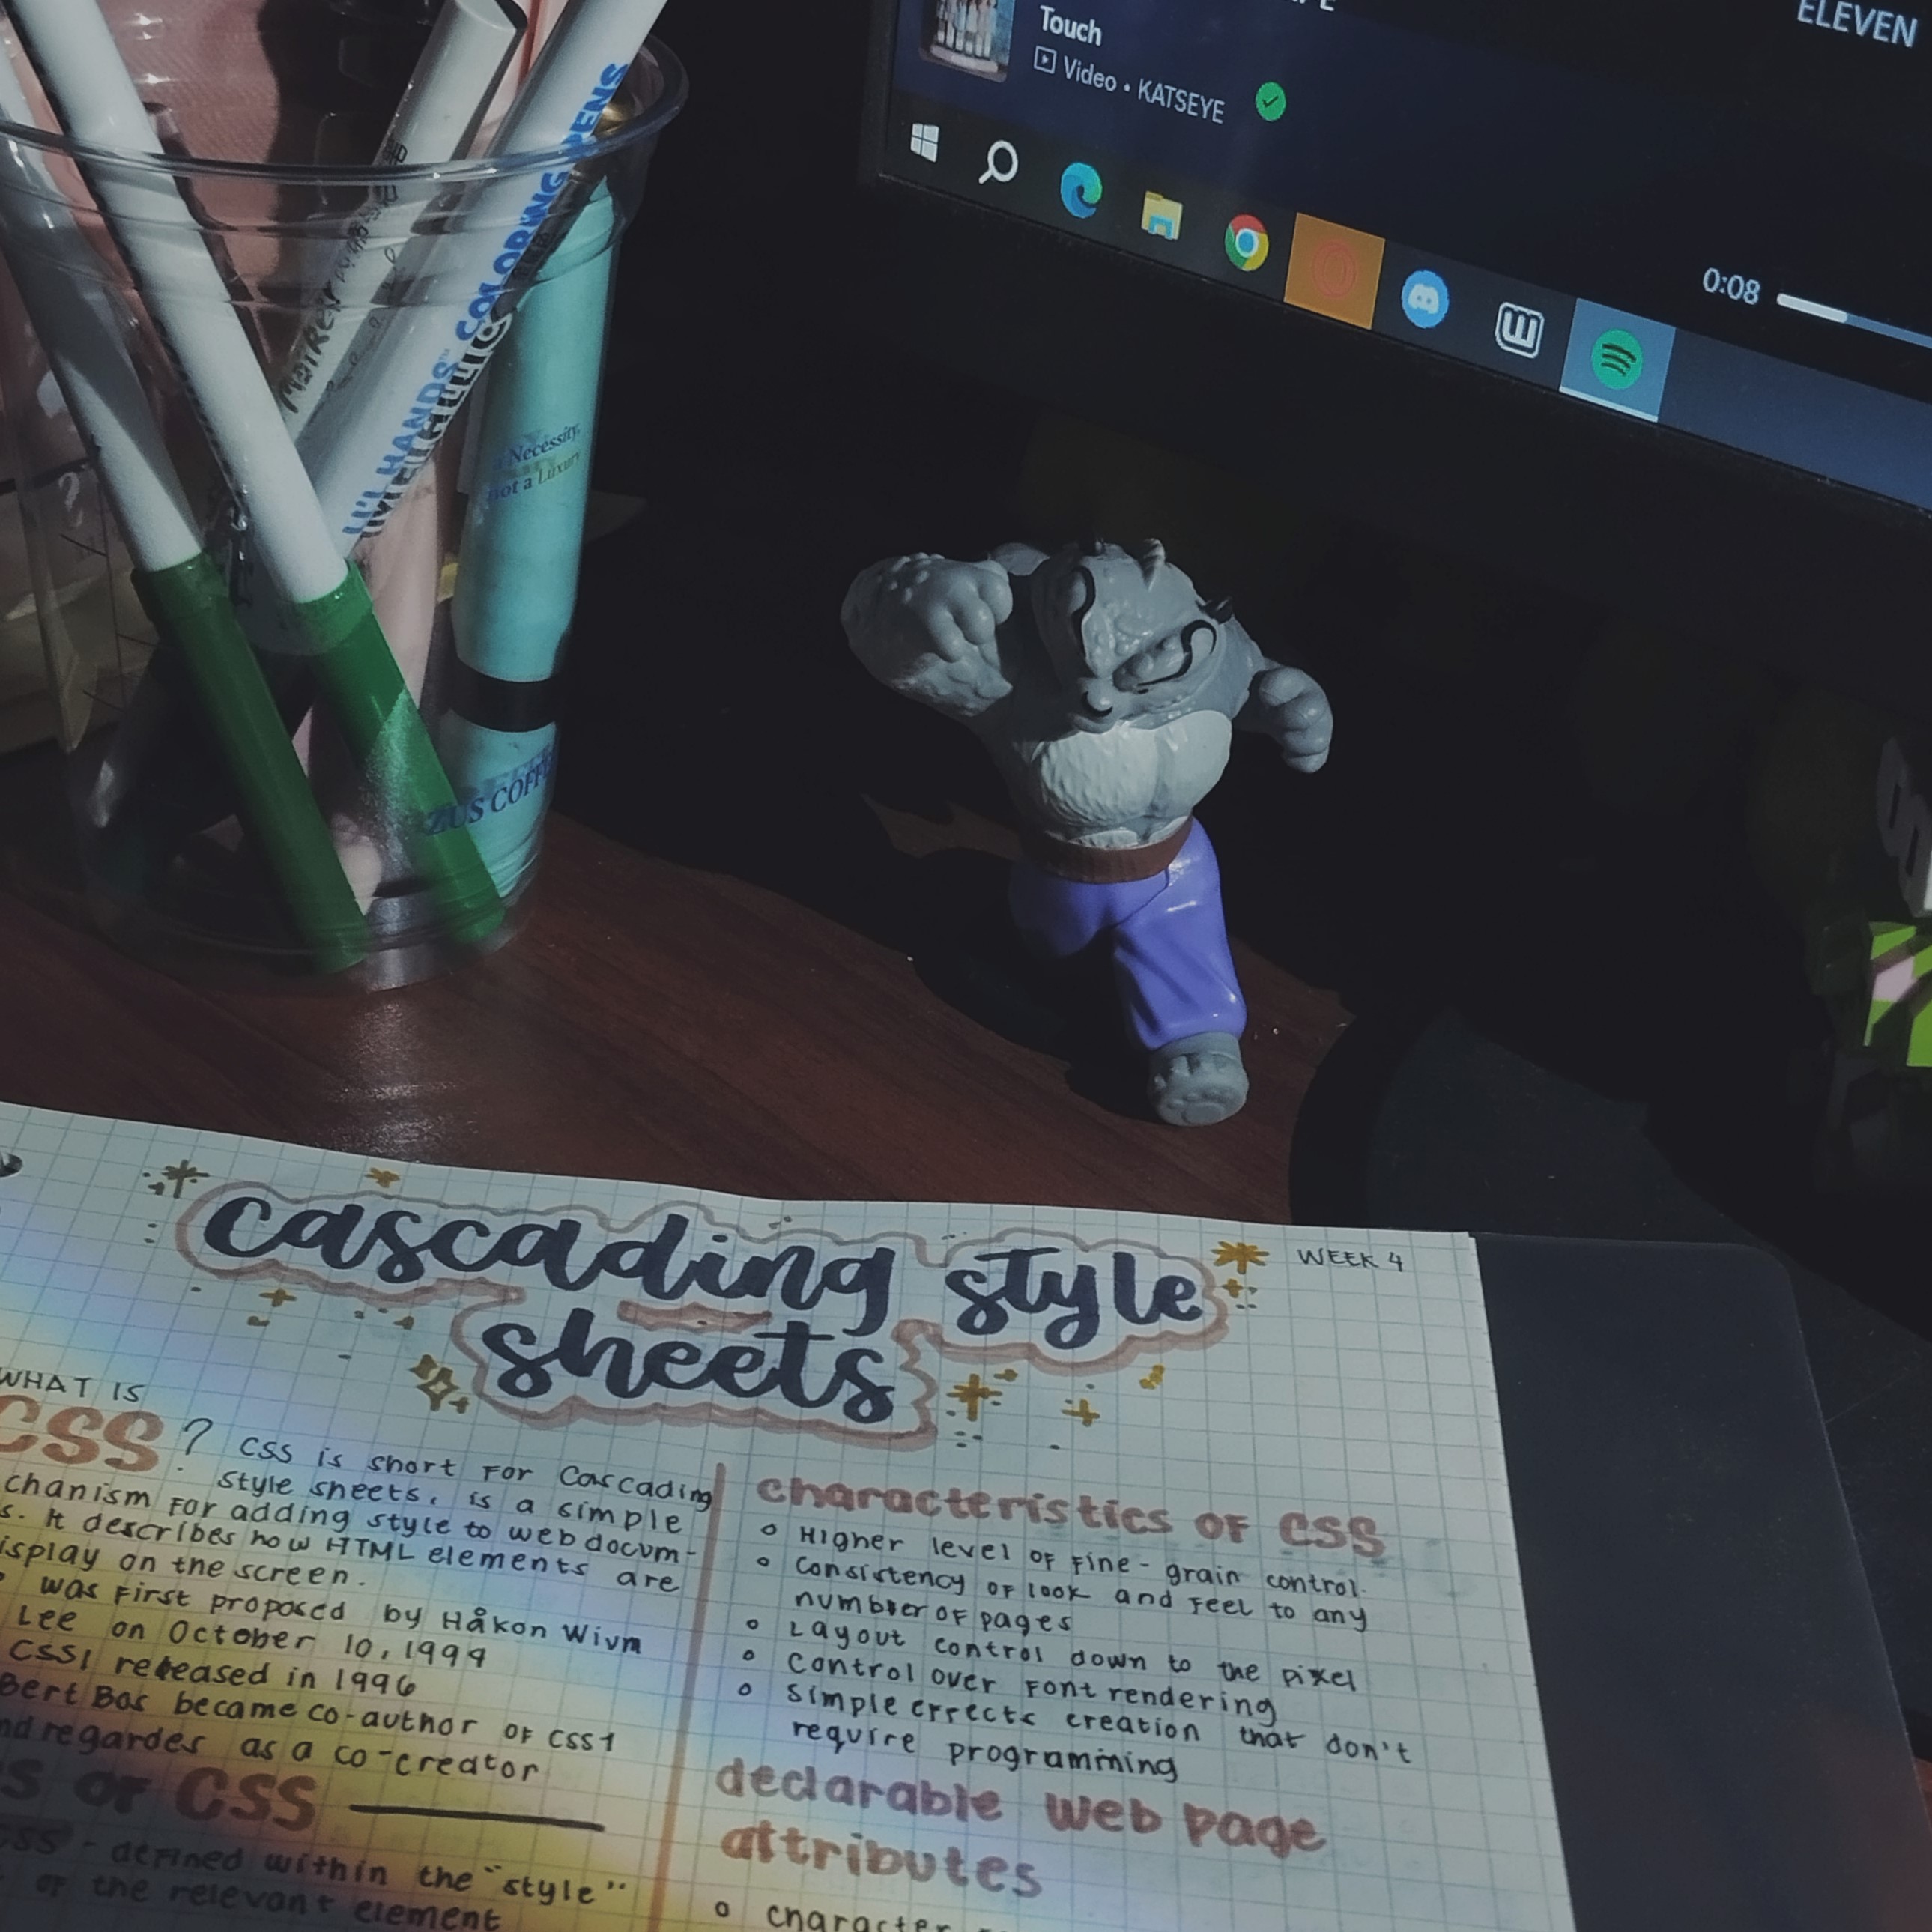 ELEVEN
Touch
Video • KATSEYE
0:08
LI'L HANDS™ COLORING PENS
METALLIC
a Necessity,
not a Luxury
ZUS COFFEE
cascading style
sheets
WEEK 4
WHAT IS
CSS? CSS is short for Cascading
style sheets, is a simple
chanism for adding style to web docum-
s. It describes how HTML elements are
isplay on the screen.
was first proposed by Håkon Wivm
Lee on October 10, 1994
CSS1 released in 1996
Bert Bos became co-author of CSS1
nd regardes as a co-creator
s of CSS
CSS - defined within the "style"
of the relevant element
characteristics of CSS
o Higher level of fine-grain control.
o consistency of look and feel to any
number of pages
o Layout control down to the pixel
o control over font rendering
o simple effects creation that don't
require programming
declarable web page
attributes
o character